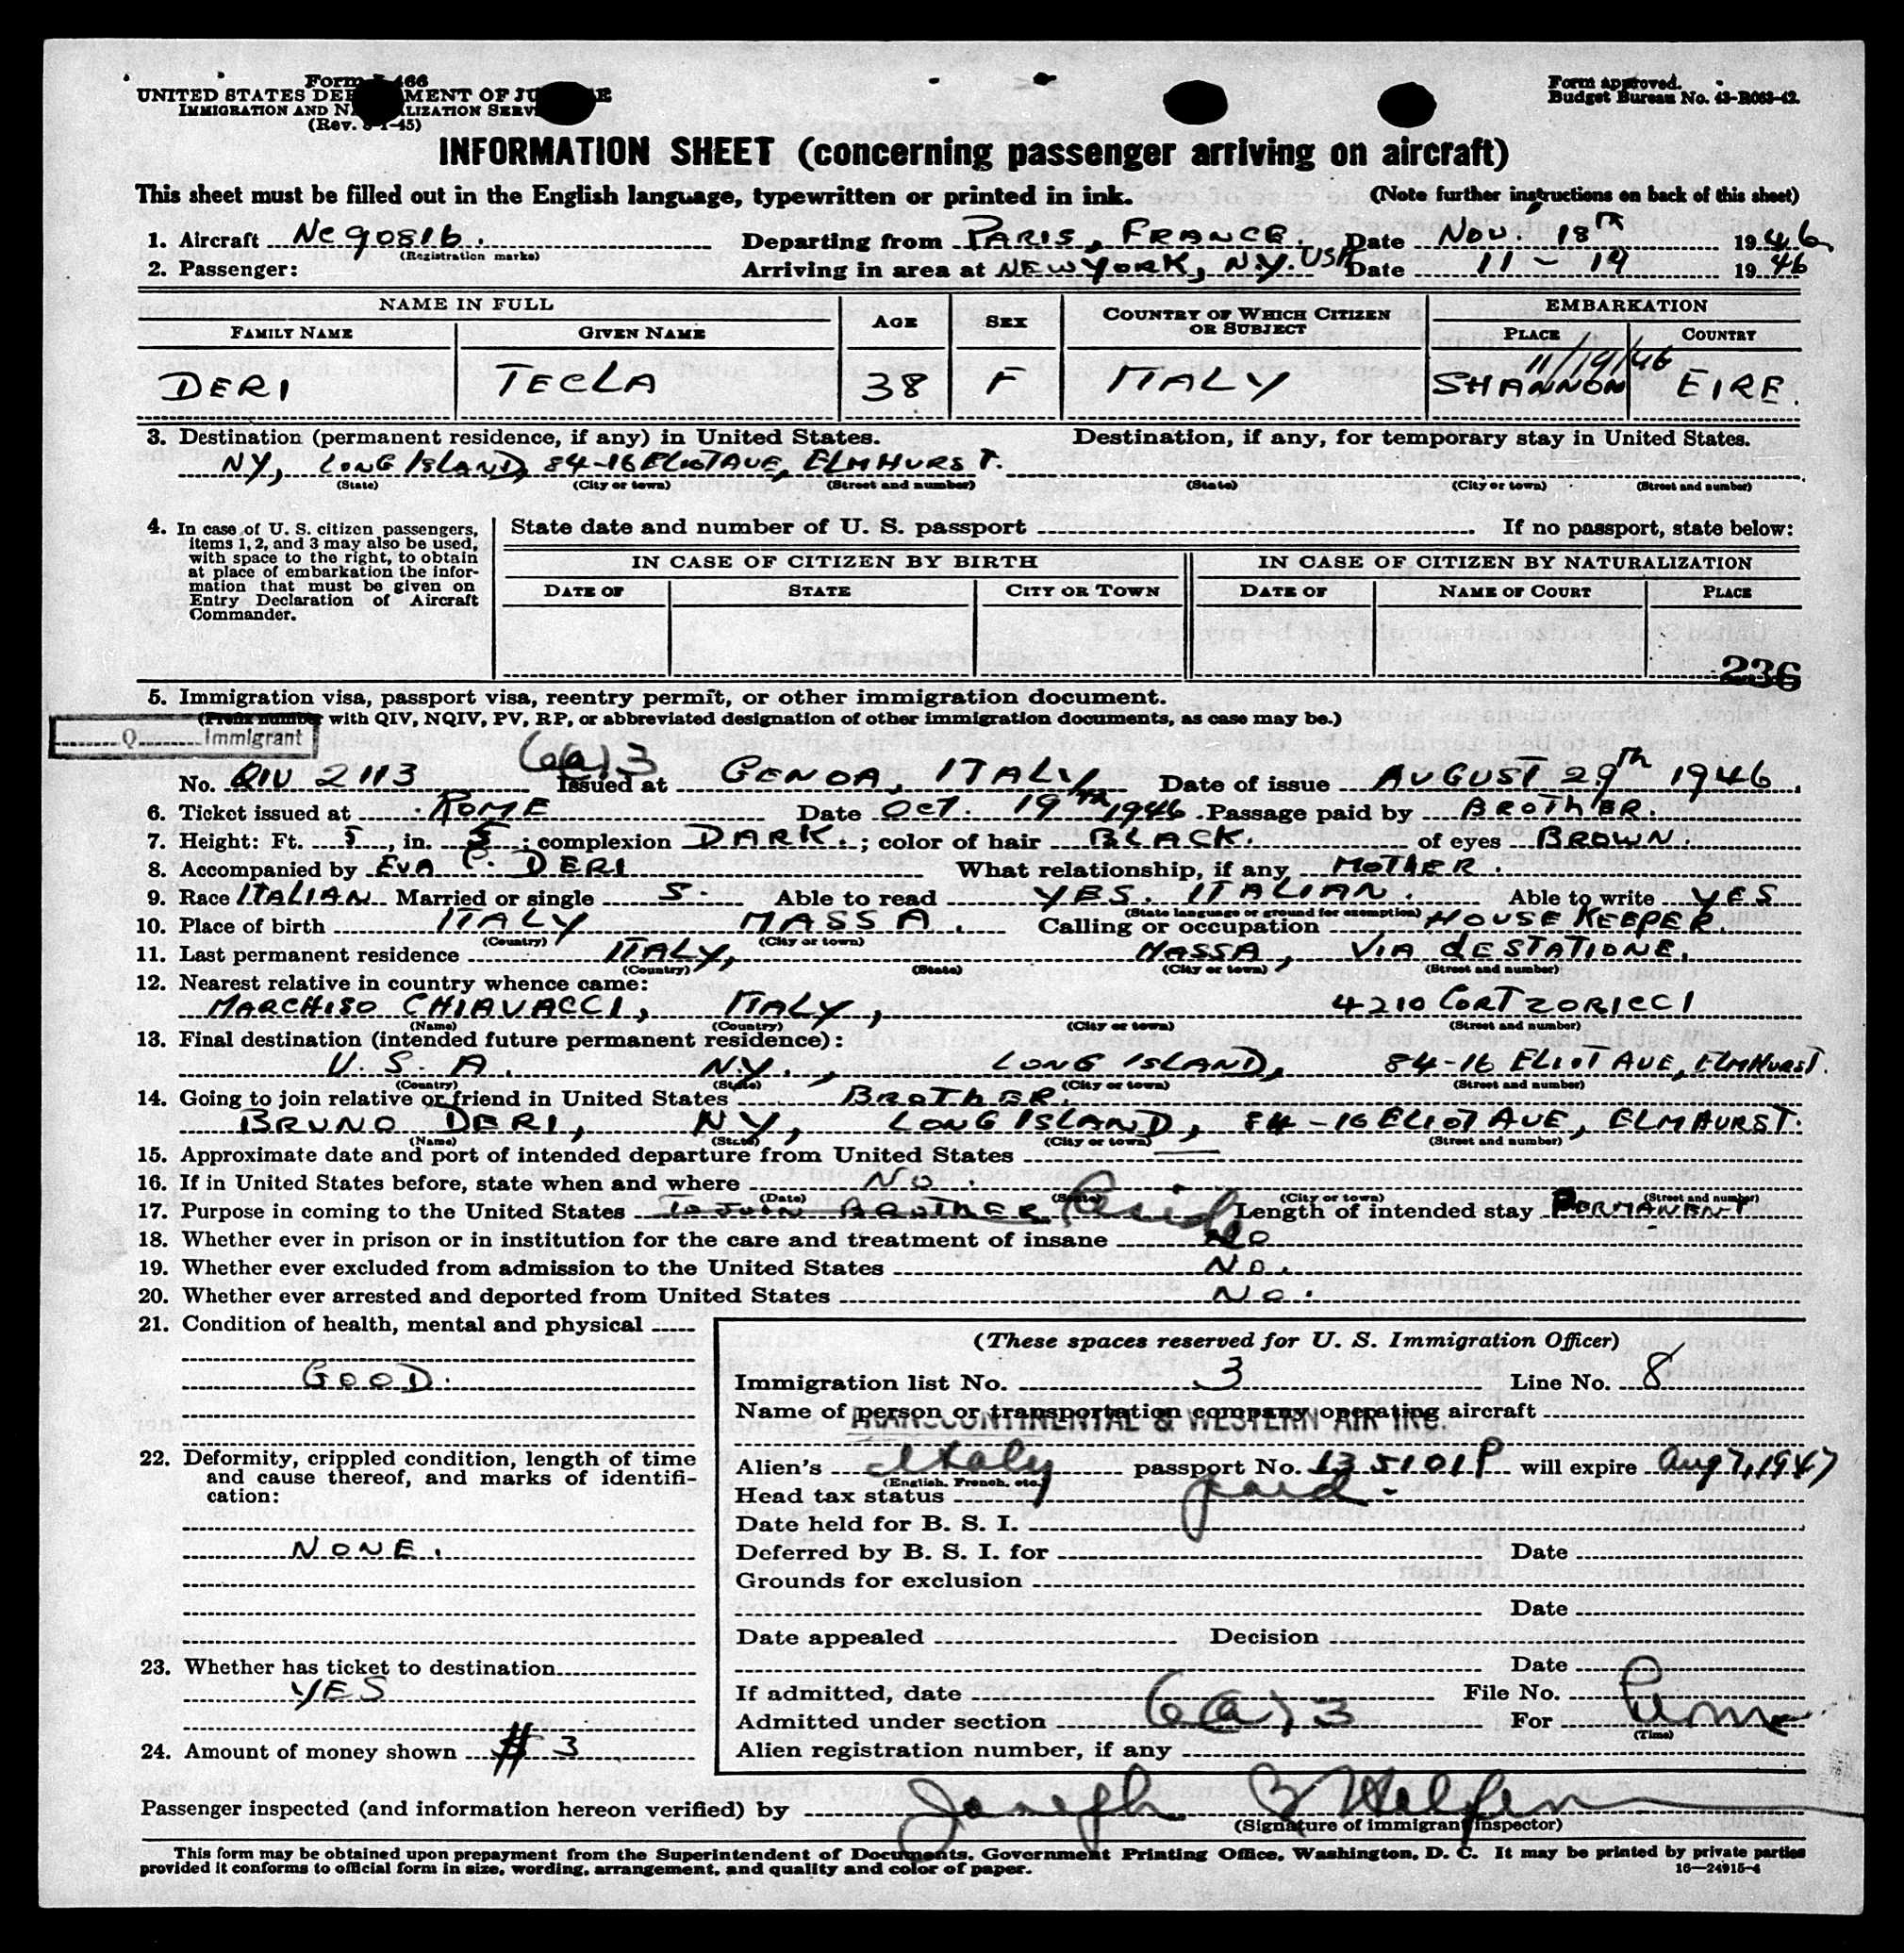 Form I-466
UNITED STATES DEPARTMENT OF JUSTICE
IMMIGRATION AND NATURALIZATION SERVICE
(Rev. -1-45)
Form approved.
Budget Bureau No. 43-R063-42.
INFORMATION SHEET (concerning passenger arriving on aircraft)
This sheet must be filled out in the English language, typewritten or printed in ink. (Note further instructions on back of this sheet)
1. Aircraft NC90816. Departing from PARIS, FRANCE. Date NOV. 18th 1946
(Registration marks)
2. Passenger: Arriving in area at NEW YORK, N.Y. USA Date 11-19 1946
NAME IN FULL AGE SEX COUNTRY OF WHICH CITIZEN OR SUBJECT EMBARKATION
FAMILY NAME GIVEN NAME PLACE COUNTRY
11/19/46
DERI TECLA 38 F ITALY SHANNON EIRE.
3. Destination (permanent residence, if any) in United States. Destination, if any, for temporary stay in United States.
NY, LONG ISLAND, 84-16 ELIOT AVE, ELMHURST.
(State) (City or town) (Street and number) (State) (City or town) (Street and number)
4. In case of U. S. citizen passengers, items 1, 2, and 3 may also be used, with space to the right, to obtain at place of embarkation the information that must be given on Entry Declaration of Aircraft Commander.
State date and number of U. S. passport If no passport, state below:
IN CASE OF CITIZEN BY BIRTH IN CASE OF CITIZEN BY NATURALIZATION
DATE OF STATE CITY OR TOWN DATE OF NAME OF COURT PLACE
236
5. Immigration visa, passport visa, reentry permit, or other immigration document.
(Prefix number with QIV, NQIV, PV, RP, or abbreviated designation of other immigration documents, as case may be.)
Q Immigrant
6(a)3
No. QIV 2113 Issued at GENOA, ITALY Date of issue AUGUST 29th 1946.
6. Ticket issued at ROME Date OCT. 19th 1946. Passage paid by BROTHER.
7. Height: Ft. 5, in. 5; complexion DARK.; color of hair BLACK. of eyes BROWN.
8. Accompanied by EVA C. DERI What relationship, if any MOTHER.
9. Race ITALIAN Married or single S. Able to read YES. ITALIAN. Able to write YES
(State language or ground for exemption)
10. Place of birth ITALY MASSA. Calling or occupation HOUSEKEEPER.
(Country) (City or town)
11. Last permanent residence ITALY, MASSA, VIA dESTATIONE.
(Country) (State) (City or town) (Street and number)
12. Nearest relative in country whence came:
MARCHISO CHIAVACCI, ITALY, 4210 CORTZORICCI
(Name) (Country) (City or town) (Street and number)
13. Final destination (intended future permanent residence):
U. S. A. N.Y., LONG ISLAND, 84-16 ELIOT AVE, ELMHURST.
(Country) (State) (City or town) (Street and number)
14. Going to join relative or friend in United States BROTHER.
BRUNO DERI, NY, LONG ISLAND, 84-16 ELIOT AVE, ELMHURST.
(Name) (State) (City or town) (Street and number)
15. Approximate date and port of intended departure from United States —
16. If in United States before, state when and where NO.
(Date) (State) (City or town) (Street and number)
17. Purpose in coming to the United States TO JOIN BROTHER Reside Length of intended stay PERMANENT
18. Whether ever in prison or in institution for the care and treatment of insane NO
19. Whether ever excluded from admission to the United States NO.
20. Whether ever arrested and deported from United States NO.
21. Condition of health, mental and physical
GOOD.
22. Deformity, crippled condition, length of time and cause thereof, and marks of identification:
NONE.
23. Whether has ticket to destination
YES
24. Amount of money shown $ 3
(These spaces reserved for U. S. Immigration Officer)
Immigration list No. 3 Line No. 8
Name of person or transportation company operating aircraft
TRANSCONTINENTAL & WESTERN AIR INC.
Alien's Italy passport No. 135101P will expire Aug 7, 1947
(English, French, etc.)
Head tax status paid.
Date held for B. S. I.
Deferred by B. S. I. for Date
Grounds for exclusion
Date
Date appealed Decision
Date
If admitted, date File No.
Admitted under section 6(a)3 For Perm
(Time)
Alien registration number, if any
Passenger inspected (and information hereon verified) by Joseph
(Signature of immigrant inspector)
This form may be obtained upon prepayment from the Superintendent of Documents, Government Printing Office, Washington, D. C. It may be printed by private parties
provided it conforms to official form in size, wording, arrangement, and quality and color of paper. 16—24915-4